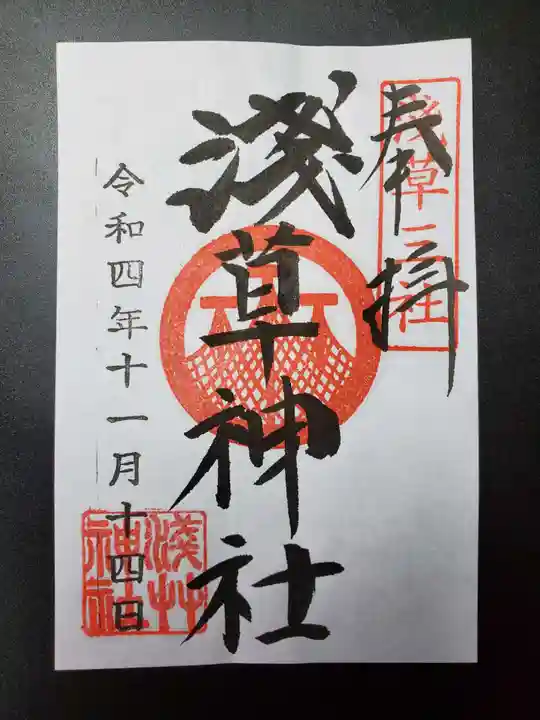 奉拝
淺草三社
淺草神社
令和四年十一月十四日
淺草神社